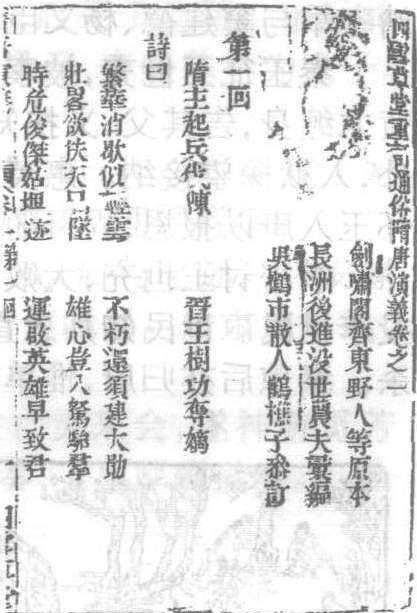 四雪草堂重訂通俗隋唐演義卷之
劍嘯閣齊東野人等原本
長洲後進没世農夫彙編
吳鶴市散人鶴樵子參訂
第一回
隋主起兵伐陳 晉王樹功奪嫡
詩曰
繁華消歇似輕雲 不朽還須建大勛
壯畧欲扶天日墜 雄心豈入駑駘羣
時危俊傑姑埋迹 運啟英雄早致君
第一回